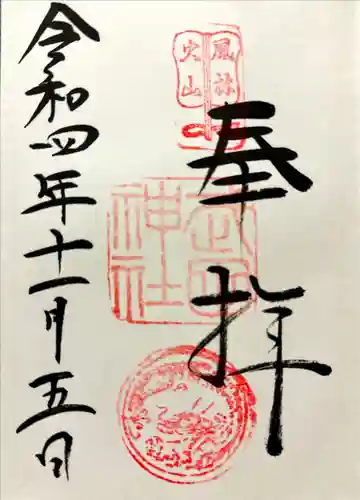 風林
火山
奉拝
武田
神社
令和四年十一月五日